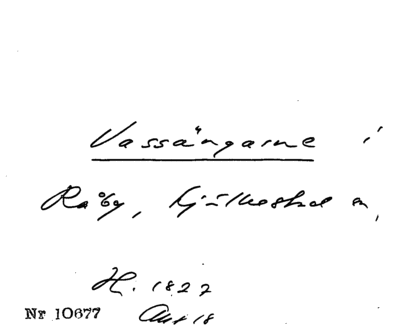 Vassängarne i
Råby, Kjulkestad m,
H. 1827
Nr 10677 Akt 18